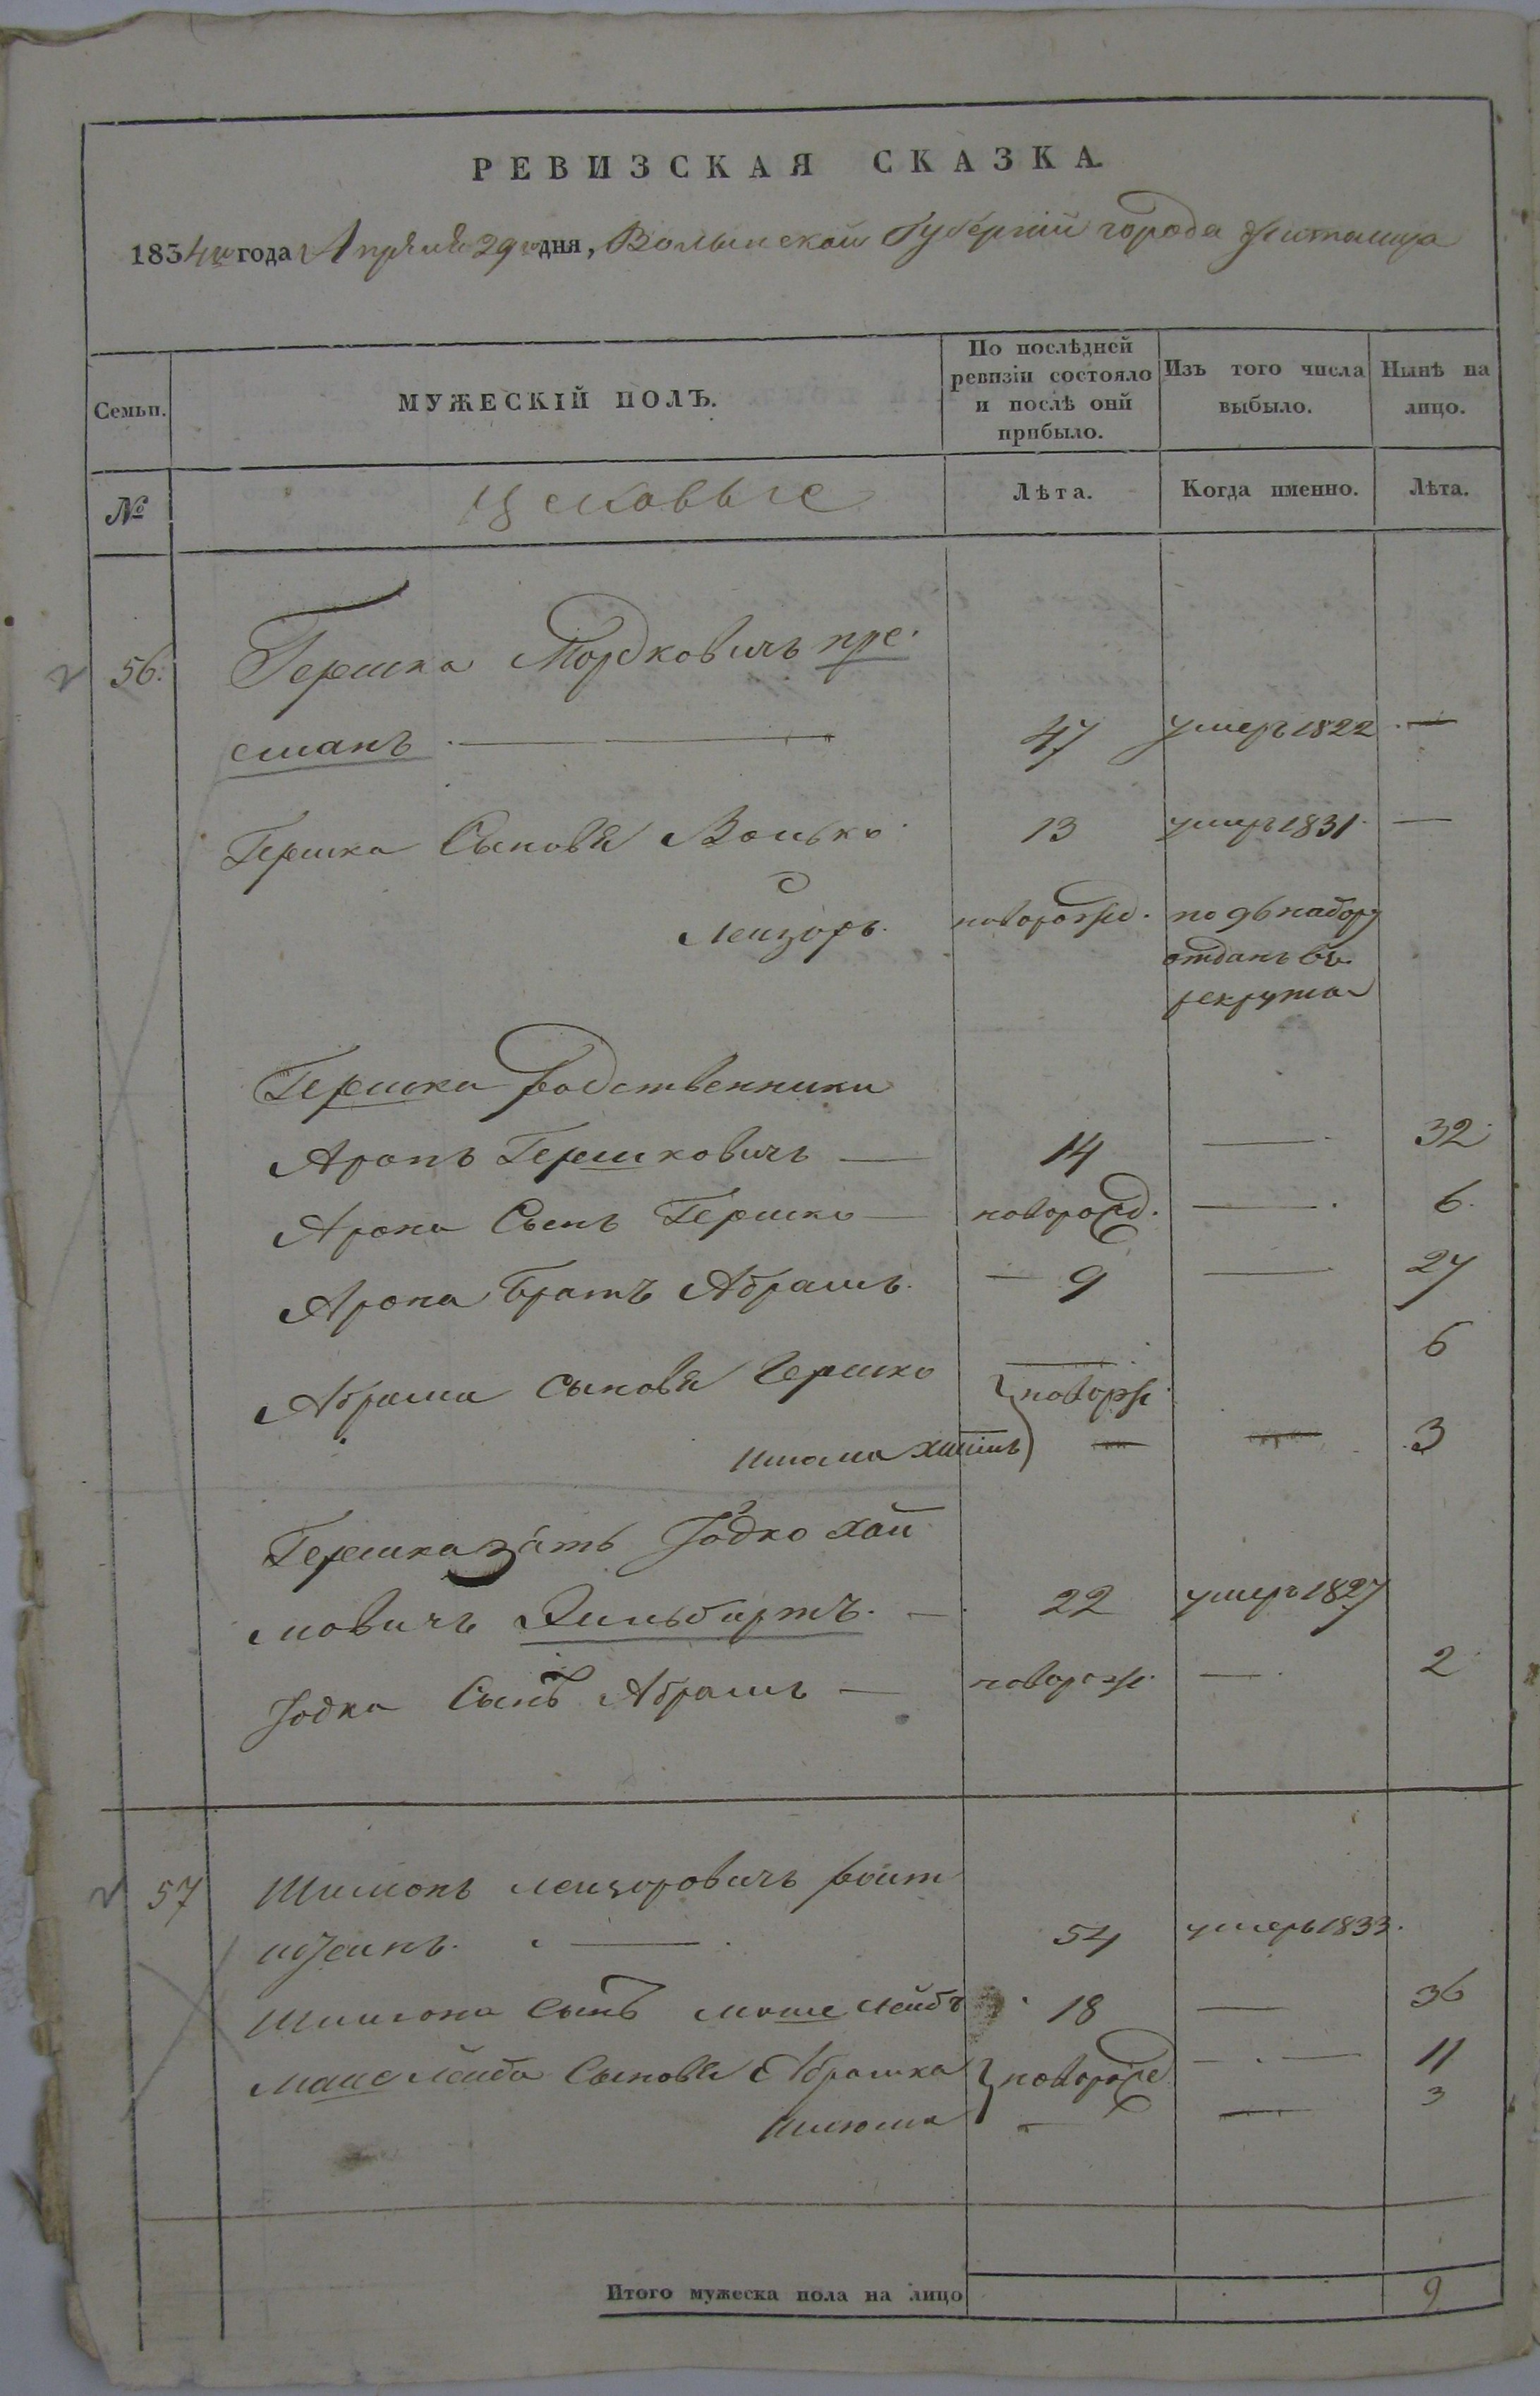 РЕВИЗСКАЯ СКАЗКА.
1834го года Апреля 29го дня, Волынской Губернии города Житомира
Семьи. МУЖЕСКІЙ ПОЛЪ. По послѣдней ревизіи состояло и послѣ онй прибыло. Изъ того числа выбыло. Нынѣ на лицо.
№ Цеховые Лѣта. Когда именно. Лѣта.
56. Гершка Мордковичъ пре.
сманъ 47 умеръ 1822 —
Гершка Сыновя Волько 13 умеръ 1831 —
Лейзоръ. новорожд. по 96 набору
отданъ въ
рекрута
Гершка родственники
Аронъ Гершковичъ — 14 — 32
Арона Сынъ Гершко — новорожд. — 6.
Арона братъ Абрамъ. — 9 — 27
Абрама сыновя Гершко — 6
новорж
хаимъ — — 3
Гершка зять Іодко Хай
мовичъ — 22 умеръ 1827
Іодка Сынъ Абрамъ — новорож — 2
57 Шимонъ Лейзоровичъ
54 умеръ 1833.
Шимона Сынъ Моше Лейбъ 18 — 36
Моше Лейба Сыновя Абрамка новорожд — 11
— — 3
Итого мужеска пола на лицо 9